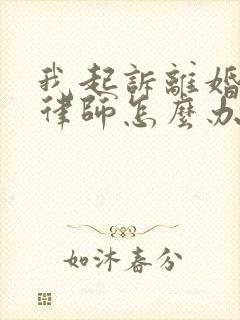 我起訴離婚
律師怎麼办
如沐春分